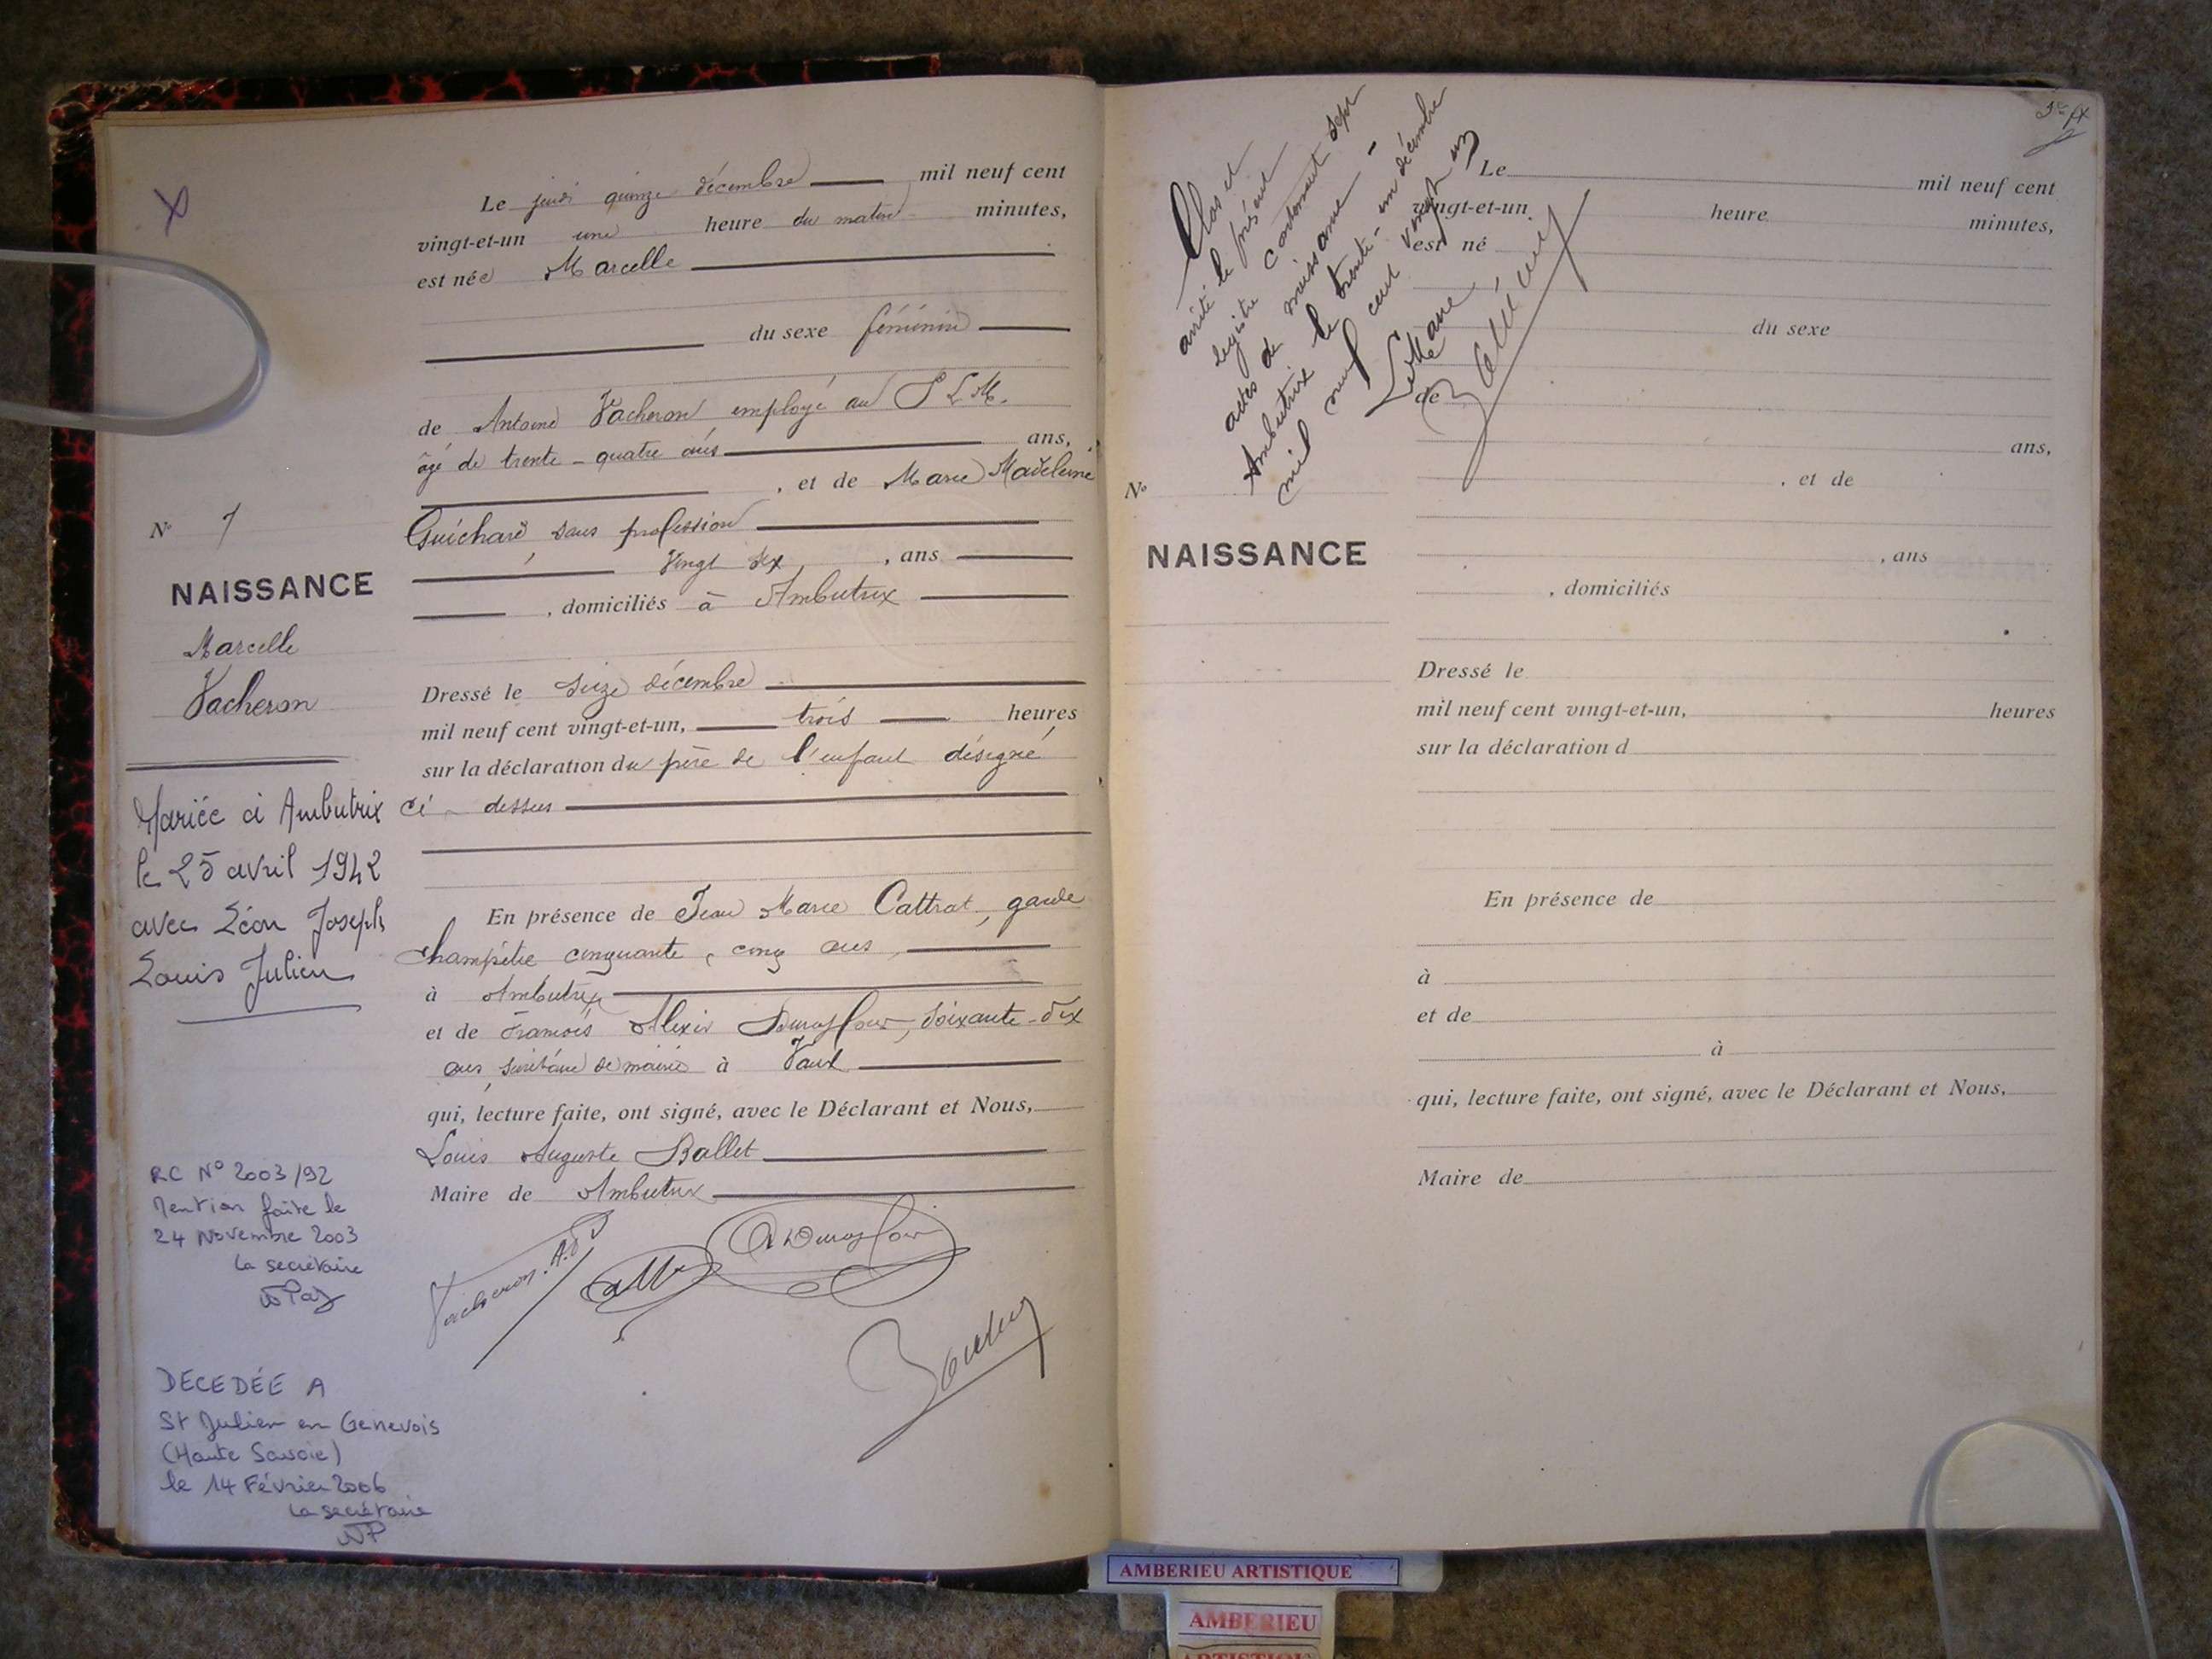 X
Le jeudi quinze décembre mil neuf cent
vingt-et-un une heure du matin minutes,
est née Marcelle
du sexe féminin
de Antoine Vacheron employé au P L M.
âgé de trente-quatre ans ans,
, et de Marie Madeleine
Guichard sans profession
vingt six , ans
, domiciliés à Ambutrix
N° 7
NAISSANCE
Marcelle
Vacheron
Dressé le seize décembre
mil neuf cent vingt-et-un, trois heures
sur la déclaration du père de l'enfant désigné
ci-dessus
Mariée à Ambutrix
le 25 avril 1942
avec Léon Joseph
Louis Julien
En présence de Jean Marie Cattrat, garde
champêtre cinquante, cinq ans,
à Ambutrix
et de François Alexis soixante-dix
ans, secrétaire de mairie à Vaux
qui, lecture faite, ont signé, avec le Déclarant et Nous,
Louis Auguste Ballet
Maire de Ambutrix
Vacheron
RC N° 2003/92
Mention faite le
24 Novembre 2003
La secrétaire
DECEDÉE A
St Julien en Genevois
(Haute Savoie)
le 14 Février 2006
La secrétaire
Clos et
arrêté le présent
registre contenant sept
actes de naissance -
Ambutrix le trente-un décembre
mil neuf cent vingt un
Le Maire
Le mil neuf cent
vingt-et-un heure minutes,
est né
du sexe
de
ans,
, et de
N°
NAISSANCE
, ans
, domiciliés
Dressé le
mil neuf cent vingt-et-un, heures
sur la déclaration d
En présence de
à
et de
à
qui, lecture faite, ont signé, avec le Déclarant et Nous,
Maire de
AMBERIEU ARTISTIQUE
AMBERIEU
ARTISTIQUE